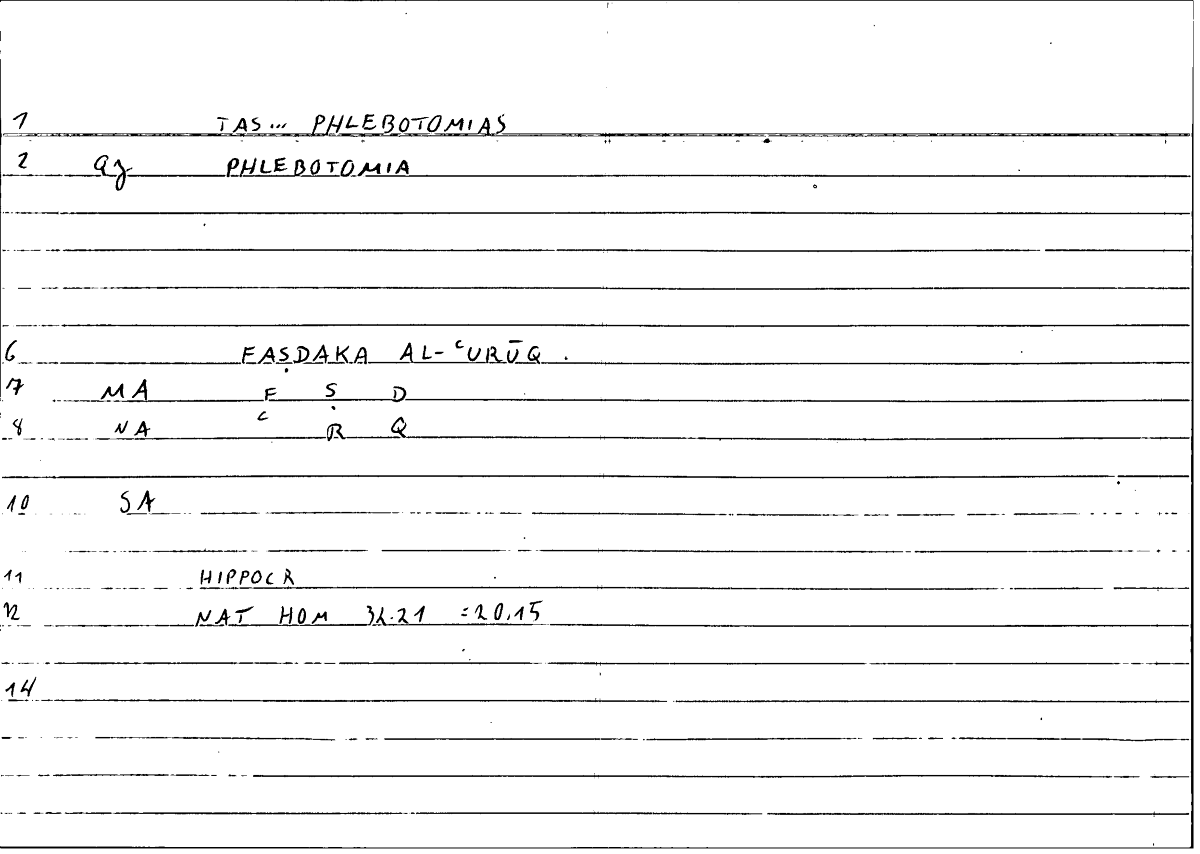 1 TAS... PHLEBOTOMIAS
2 PHLEBOTOMIA
6 FAṢDAKA AL-ʿURŪQ.
7 MA F Ṣ D
8 NA ʿ R Q
10 SA
11 HIPPOCR
12 NAT HOM 32.21 =20,15
14